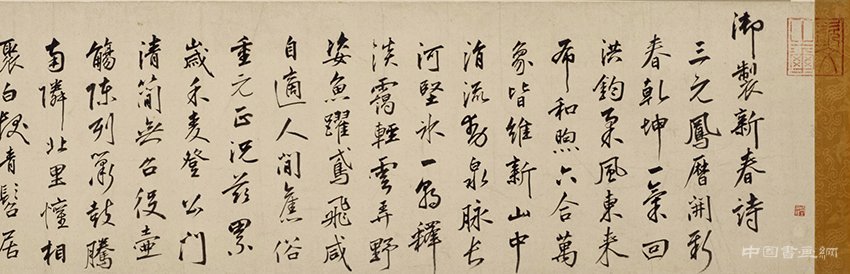 御製新春詩
三元鳳曆開新
春乾坤一氣回
洪鈞柔風東來
布和煦六合萬
象皆維新山中
涓流動泉脉長
河堅冰一朝釋
淡靄輕雲弄野
姿魚躍鳶飛咸
自適人間舊俗
重元正況茲累
歲禾麥登公門
清簡無召役壺
觴陳列簫鼓騰
南隣北里懽相
聚白髮青髫居
中國書畫網